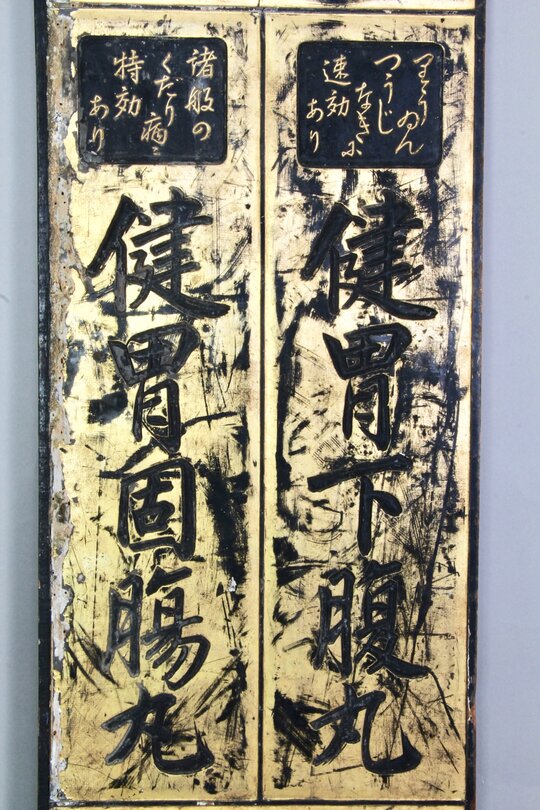 りうゐん
つうじ
なきに
速効
あり
健胃下腹丸
諸般の
くだり
病ニ
特効
あり
健胃固腸丸